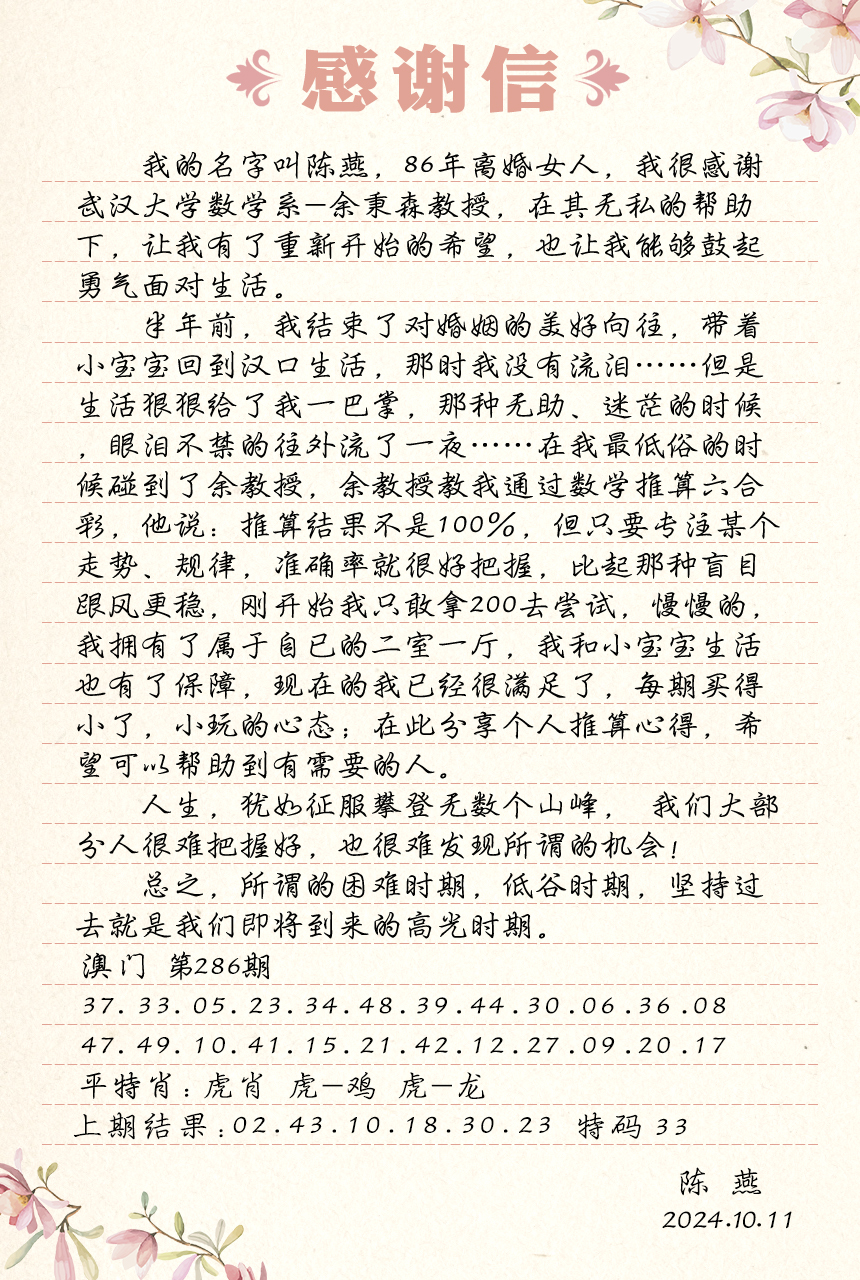 感谢信
我的名字叫陈燕，86年离婚女人，我很感谢
武汉大学数学系—余秉森教授，在其无私的帮助
下，让我有了重新开始的希望，也让我能够鼓起
勇气面对生活。
半年前，我结束了对婚姻的美好向往，带着
小宝宝回到汉口生活，那时我没有流泪……但是
生活狠狠给了我一巴掌，那种无助、迷茫的时候
，眼泪不禁的往外流了一夜……在我最低俗的时
候碰到了余教授，余教授教我通过数学推算六合
彩，他说：推算结果不是100%，但只要专注某个
走势、规律，准确率就很好把握，比起那种盲目
跟风更稳，刚开始我只敢拿200去尝试，慢慢的，
我拥有了属于自已的二室一厅，我和小宝宝生活
也有了保障，现在的我已经很满足了，每期买得
小了，小玩的心态；在此分享个人推算心得，希
望可以帮助到有需要的人。
人生，犹如征服攀登无数个山峰， 我们大部
分人很难把握好，也很难发现所谓的机会！
总之，所谓的困难时期，低谷时期，坚持过
去就是我们即将到来的高光时期。
澳门 第286期
37.33.05.23.34.48.39.44.30.06.36.08
47.49.10.41.15.21.42.12.27.09.20.17
平特肖：虎肖 虎—鸡 虎—龙
上期结果：02.43.10.18.30.23 特码 33
陈 燕
2024.10.11